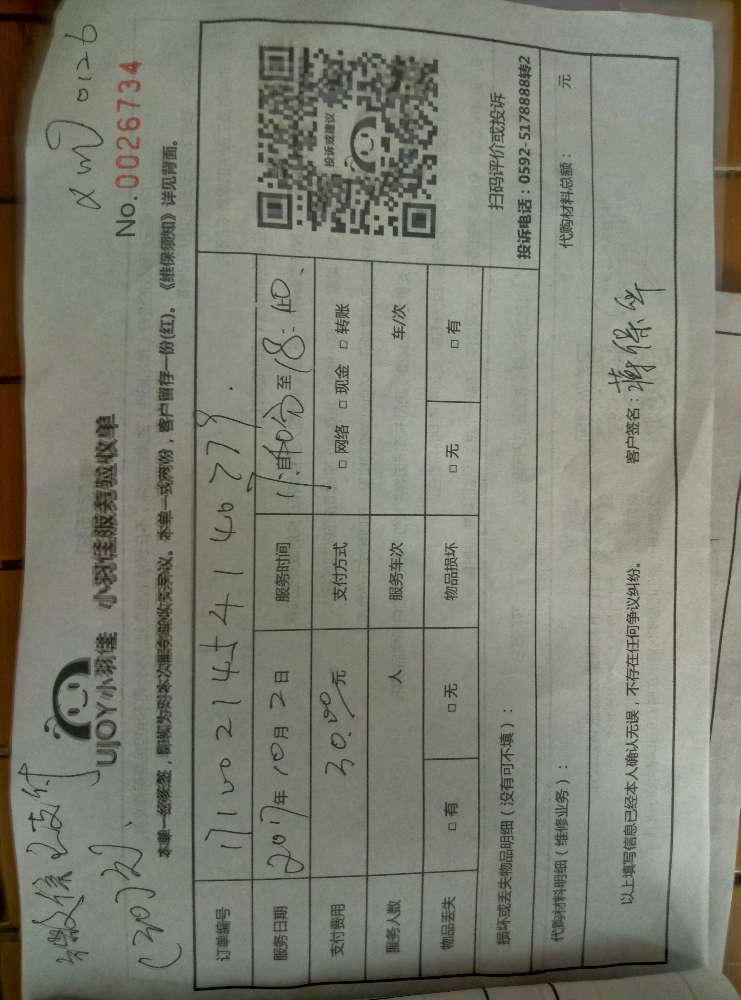 微信已支付
(30元)、
xm 0126
UJOY小羽佳 小羽佳服务验收单
No.0026734
本单一经接签，即视为对本次服务验收无异议。本单一式两份，客户留存一份(红)。《维保须知》详见背面。
订单编号
服务日期 2017年10月2日 服务时间 自 至18:40
支付费用 30.00元 支付方式 □网络 □现金 □转账
服务人数 人 服务车次 车/次
物品丢失 □有 □无 物品损坏 □无 □有
投诉或建议
扫码评价或投诉
投诉电话：0592-5178888转2
损坏或丢失物品明细（没有可不填）：
代购材料明细（维修业务）： 代购材料总额： 元
以上填写信息已经本人确认无误，不存在任何争议纠纷。 客户签名：